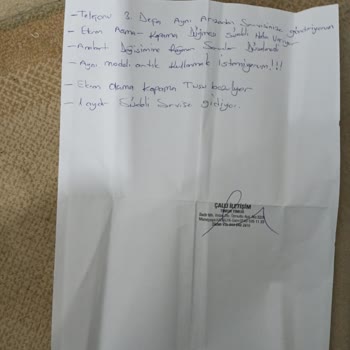 - Telefonu 3. Defa Aynı Arızadan Servisinize gönderiyorum
- Ekran Açma - Kapama Düğmesi Sürekli Hata Veriyor
- Anakart Değişimine Rağmen Sorunlar Düzelmedi
- Aynı modeli artık kullanmak istemiyorum!!!
- Ekran Açma Kapama Tuşu bozuluyor
- 1 aydır Sürekli Servise Gidiyor.
ÇALLI İLETİŞİM